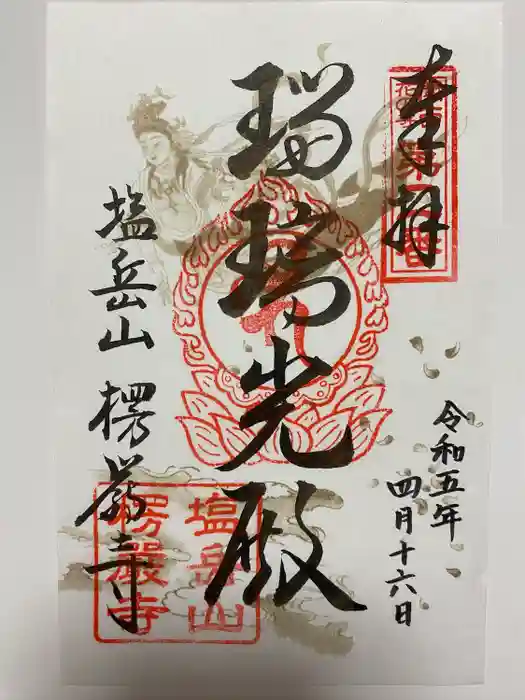 奉拝
第二番
令和五年
四月十六日
瑠璃光殿
塩岳山 楞嚴寺
塩岳山
楞嚴寺